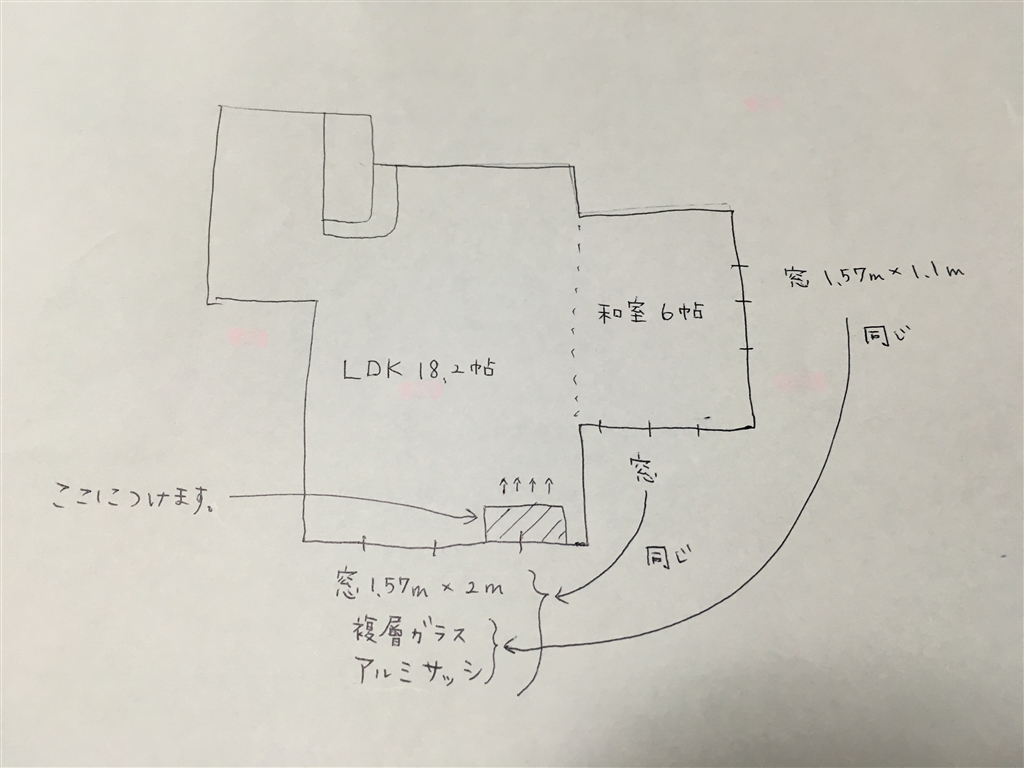 窓 1.57m×1.1m
和室 6帖
同じ
LDK 18.2帖
窓
ここにつけます。
同じ
窓 1.57m × 2m
複層ガラス
アルミサッシ